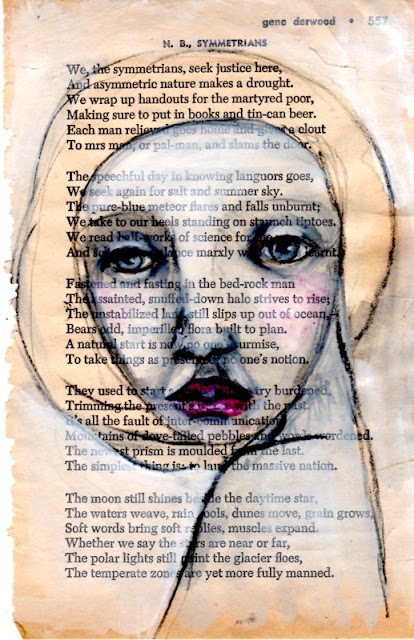 gene derwood • 557
N. B., SYMMETRIANS
We, the symmetrians, seek justice here,
And asymmetric nature makes a drought.
We wrap up handouts for the martyred poor,
Making sure to put in books and tin-can beer.
Each man relieved goes home and gives a clout
To mrs man, or pal-man, and slams the door.
The speechful day in knowing languors goes,
We seek again for salt and summer sky.
The pure-blue meteor flares and falls unburnt;
We take to our heels standing on staunch tiptoes.
We read half-works of science for
And marxly learnt.
Fastened and fasting in the bed-rock man
The assainted, snuffed-down halo strives to rise;
The unstabilized land still slips up out of ocean,
Bears odd, imperilled flora built to plan.
A natural start is now no one surmise,
To take things as presented no one's notion.
They used to start burdened,
Trimming the present's with the past.
It's all the fault of inter-communication
Mountains of dove-tailed pebbles and words wordened.
The newest prism is moulded from the last.
The simplest thing is to laud the massive nation.
The moon still shines beside the daytime star,
The waters weave, rain pools, dunes move, grain grows,
Soft words bring soft replies, muscles expand.
Whether we say the stars are near or far,
The polar lights still paint the glacier floes,
The temperate zones are yet more fully manned.